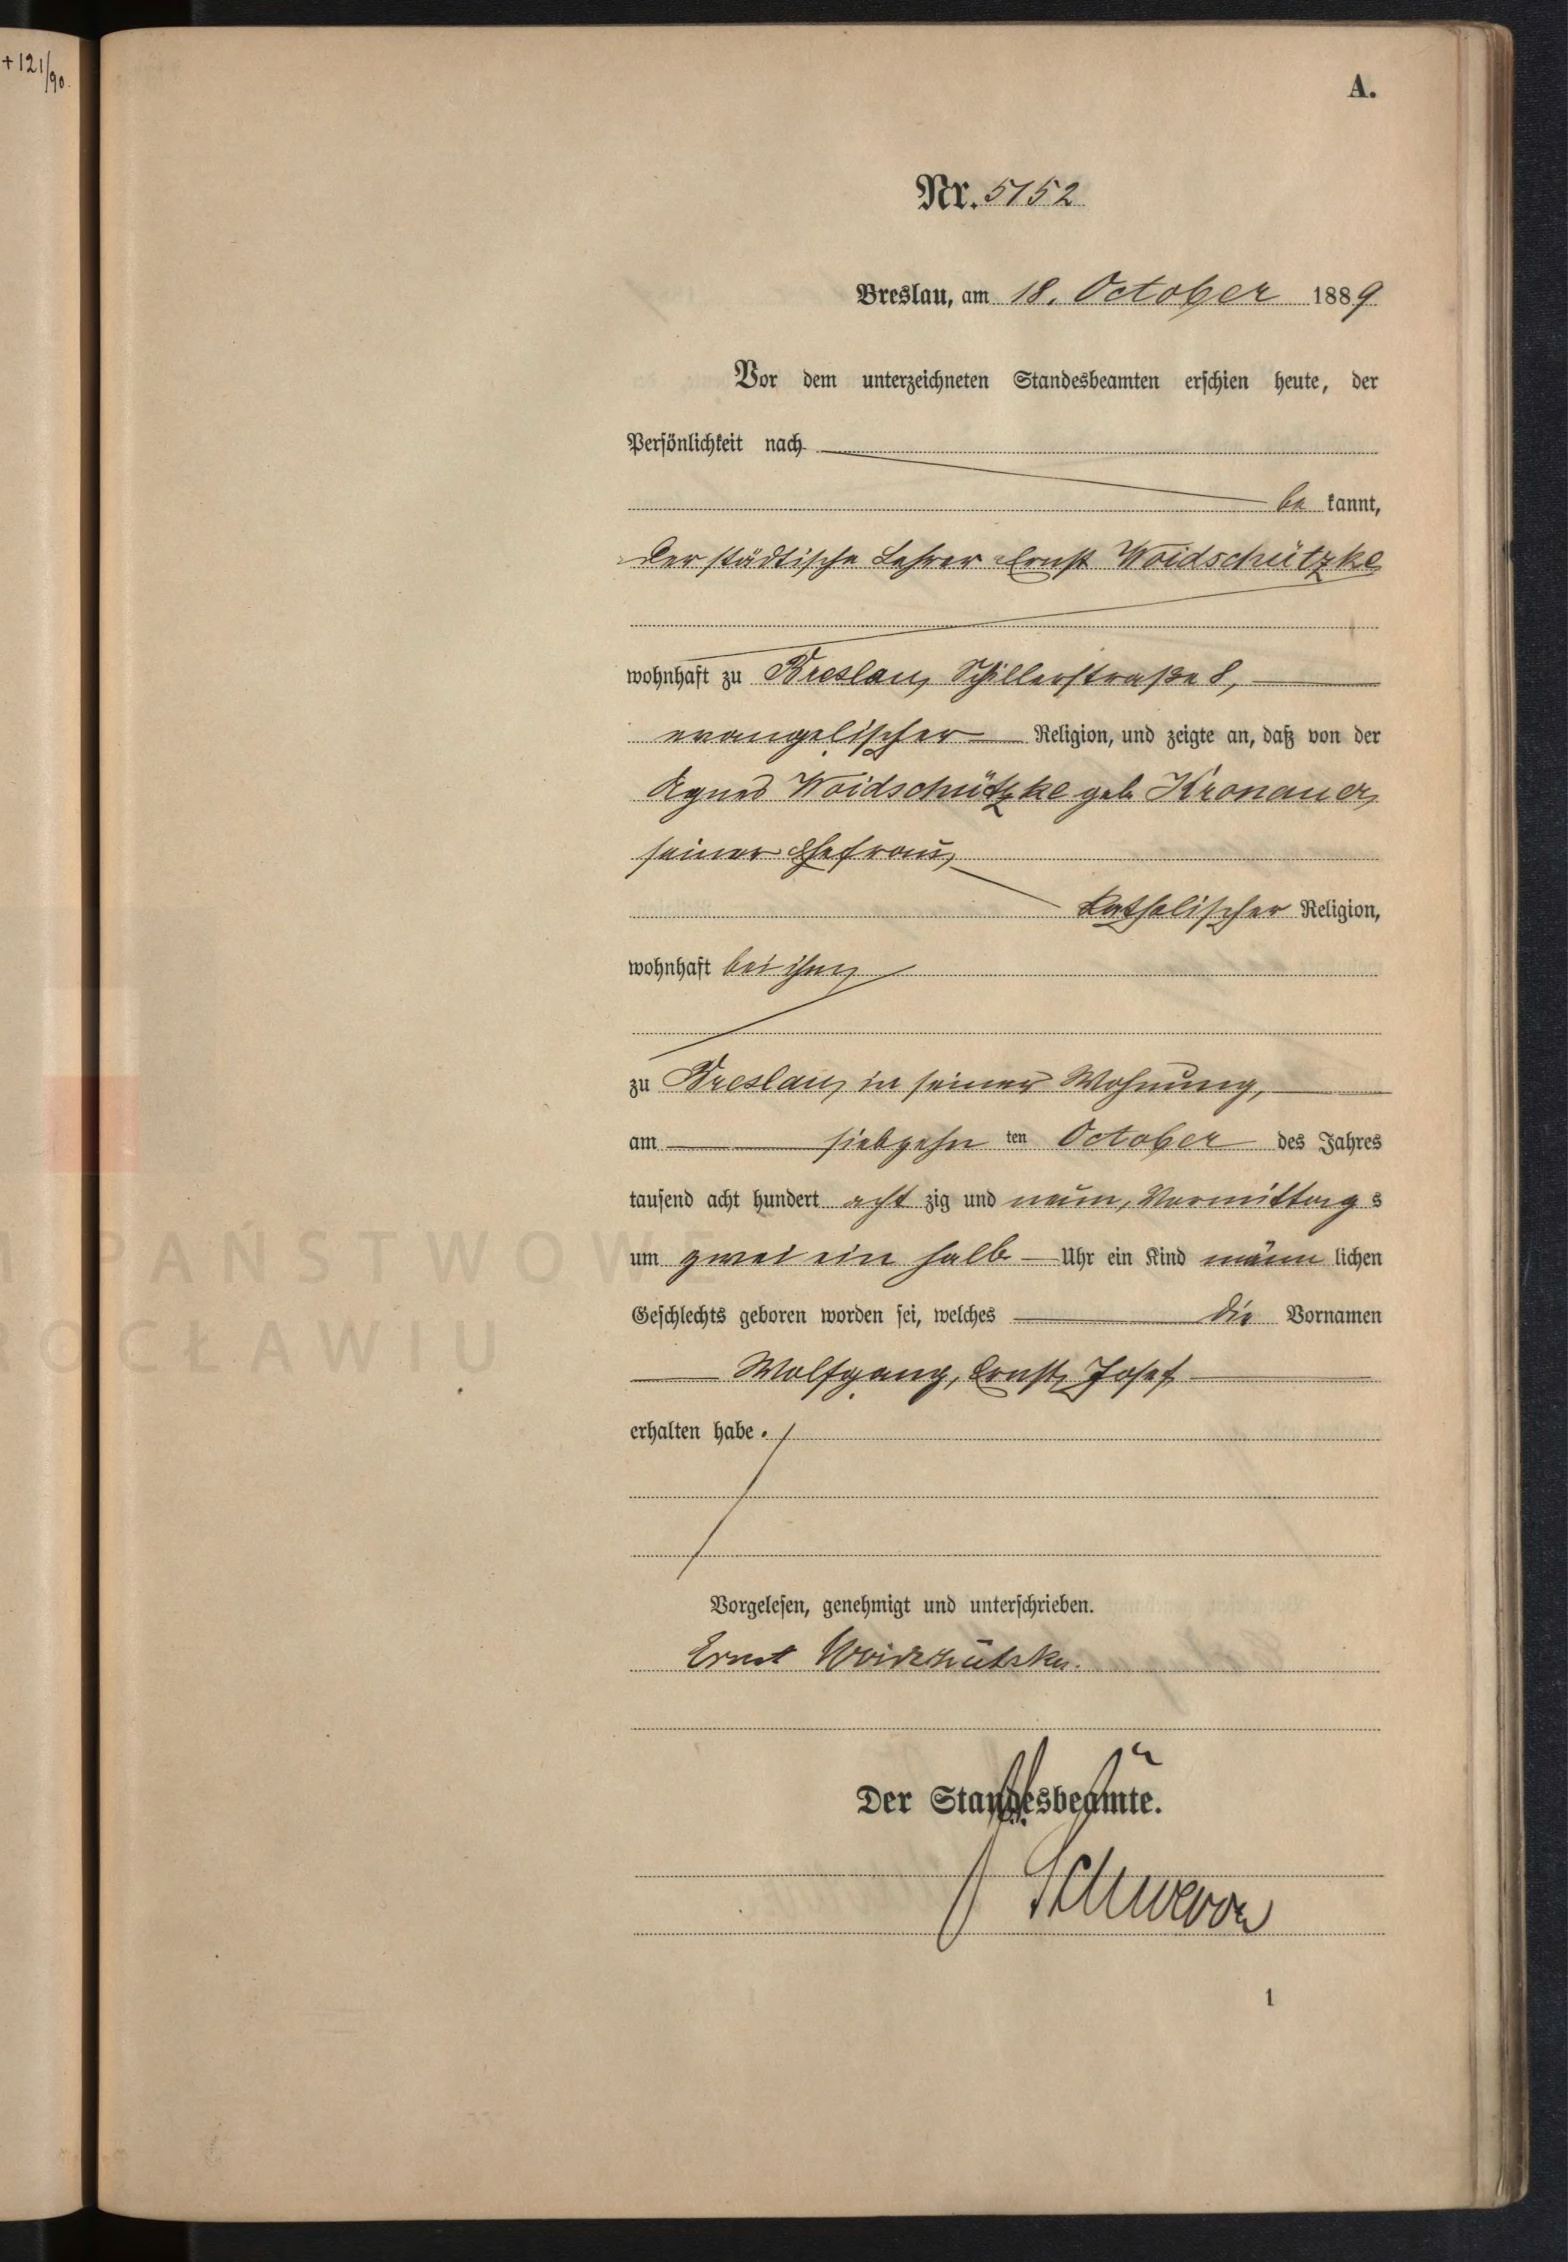 +121/90.
A.
Nr. 5152
Breslau, am 18. October 1889
Vor dem unterzeichneten Standesbeamten erschien heute, der
Persönlichkeit nach
be kannt,
der städtische Lehrer Ernst Woidschützke
wohnhaft zu Breslau, Schillerstraße 8,
evangelischer Religion, und zeigte an, daß von der
Agnes Woidschützke geb. Kronauer,
seiner Ehefrau,
katholischer Religion,
wohnhaft bei ihm,
zu Breslau, in seiner Wohnung,
am siebzehn ten October des Jahres
tausend acht hundert acht zig und neun, Vormittag s
um zwei ein halb Uhr ein Kind männ lichen
Geschlechts geboren worden sei, welches die Vornamen
Wolfgang, Ernst, Josef
erhalten habe.
Vorgelesen, genehmigt und unterschrieben.
Ernst Woidschützke.
Der Standesbeamte.
1
PAŃSTWOWE
ROCŁAWIU